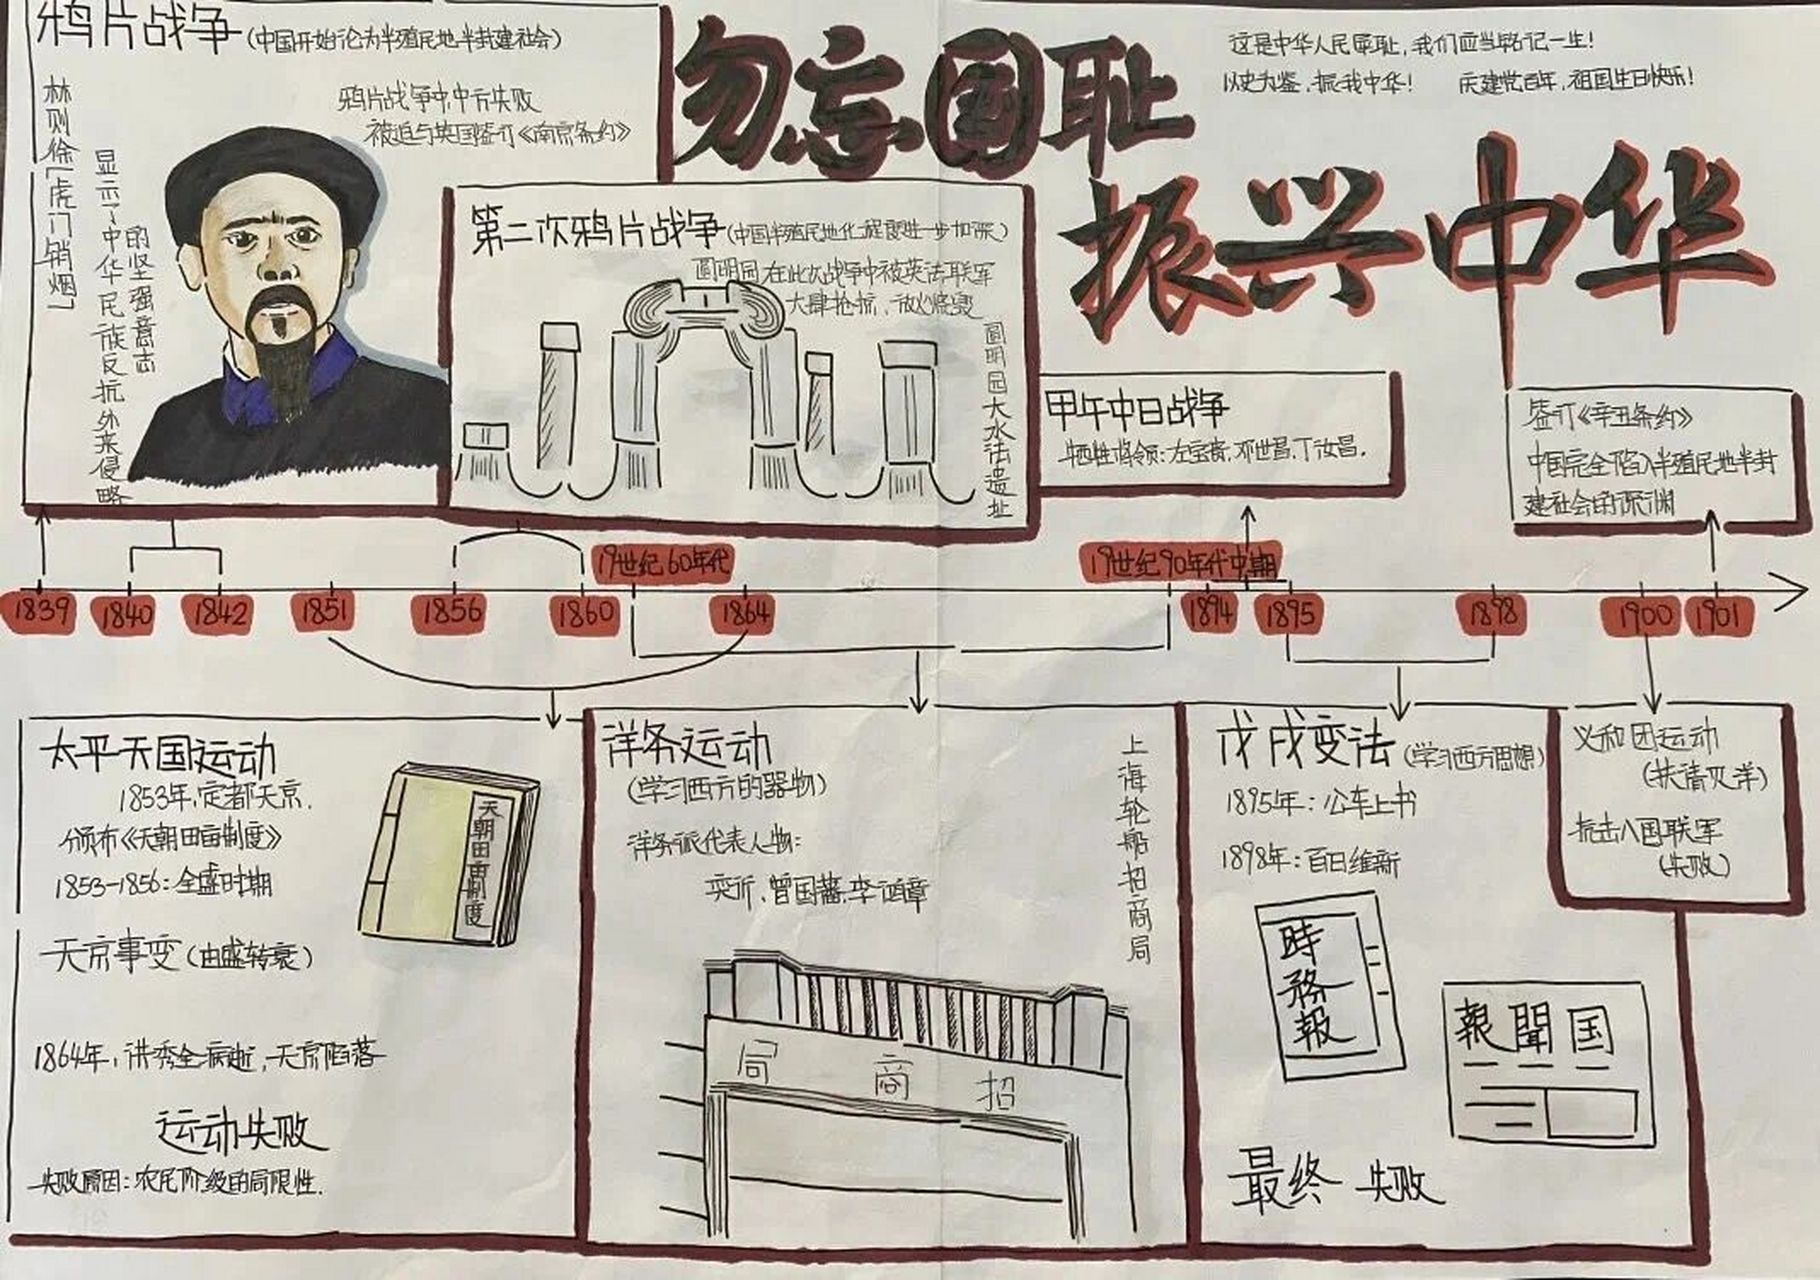 鸦片战争(中国开始沦为半殖民地半封建社会)
林则徐「虎门销烟」
显示了中华民族反抗外来侵略
的坚强意志
鸦片战争中,中方失败
被迫与英国签订《南京条约》
勿忘国耻
振兴中华
这是中华人民屈耻,我们应当铭记一生!
以史为鉴,振我中华! 庆建党百年,祖国生日快乐!
第二次鸦片战争(中国半殖民地化程度进一步加深)
圆明园在此次战争中被英法联军
大肆抢掠、放火烧毁
圆明园大水法遗址
甲午中日战争
牺牲将领:左宝贵,邓世昌,丁汝昌.
签订《辛丑条约》
中国完全陷入半殖民地半封
建社会的深渊
19世纪60年代
19世纪90年代中期
1839 1840 1842 1851 1856 1860 1864 1894 1895 1898 1900 1901
太平天国运动
1853年,定都天京.
颁布《天朝田亩制度》
1853-1856:全盛时期
天朝田亩制度
天京事变(由盛转衰)
1864年,洪秀全病逝,天京陷落
运动失败
失败原因:农民阶级的局限性.
洋务运动
(学习西方的器物)
洋务派代表人物:
奕䜣、曾国藩,李鸿章
上海轮船招商局
局商招
戊戌变法(学习西方思想)
1895年:公车上书
1898年:百日维新
時務報
報聞国
最终 失败
义和团运动
(扶清灭洋)
抗击八国联军
(失败)